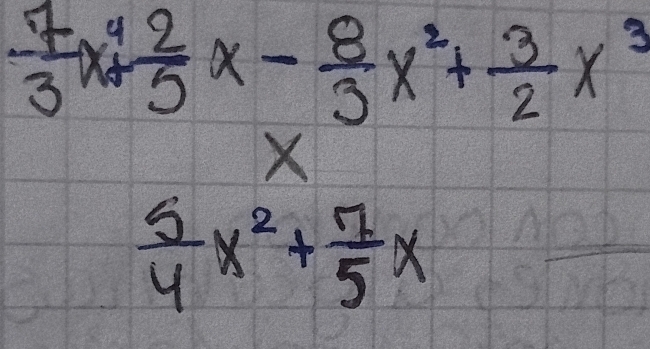 7/3 x⁴ + 2/5 x - 8/3 x² + 3/2 x³
x
5/4 x² + 7/5 x